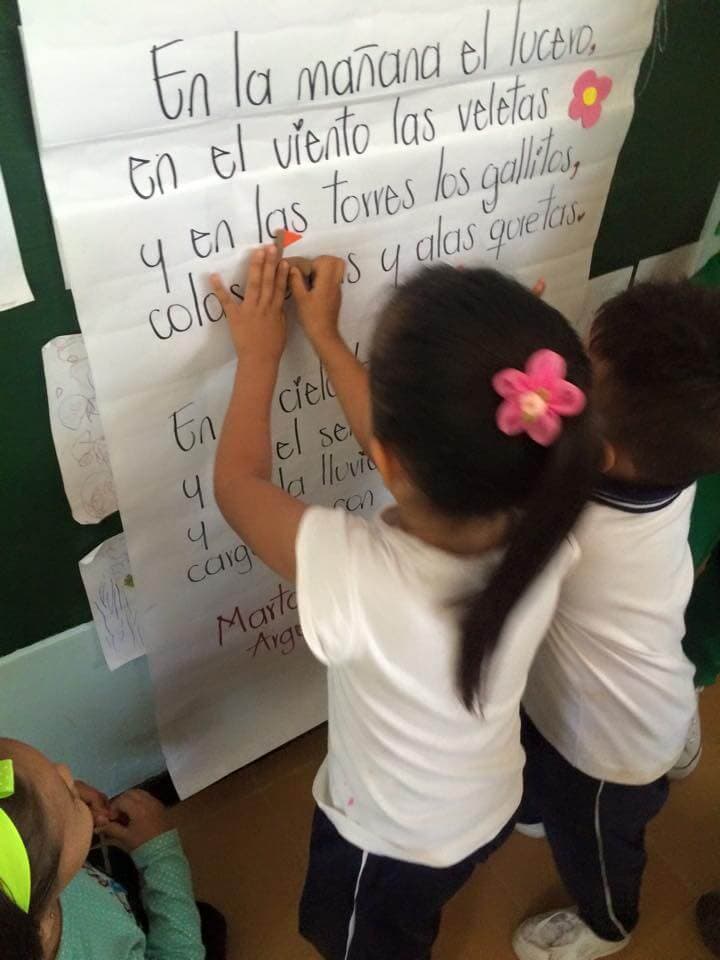 En la mañana el lucero,
en el viento las veletas
y en las torres los gallitos,
y alas quietas.
En
y el
y la lluvia
y con
Marta